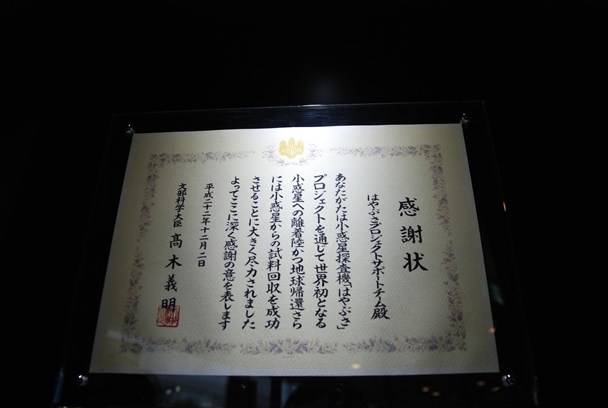 感謝状
はやぶさプロジェクトサポートチーム殿
あなたがたは小惑星探査機「はやぶさ」
プロジェクトを通して世界初となる
小惑星への離着陸かつ地球帰還さら
には小惑星からの試料回収を成功
させることに大きく尽力されました
よってここに深く感謝の意を表します
平成二十二年十二月二日
文部科学大臣 高木義明